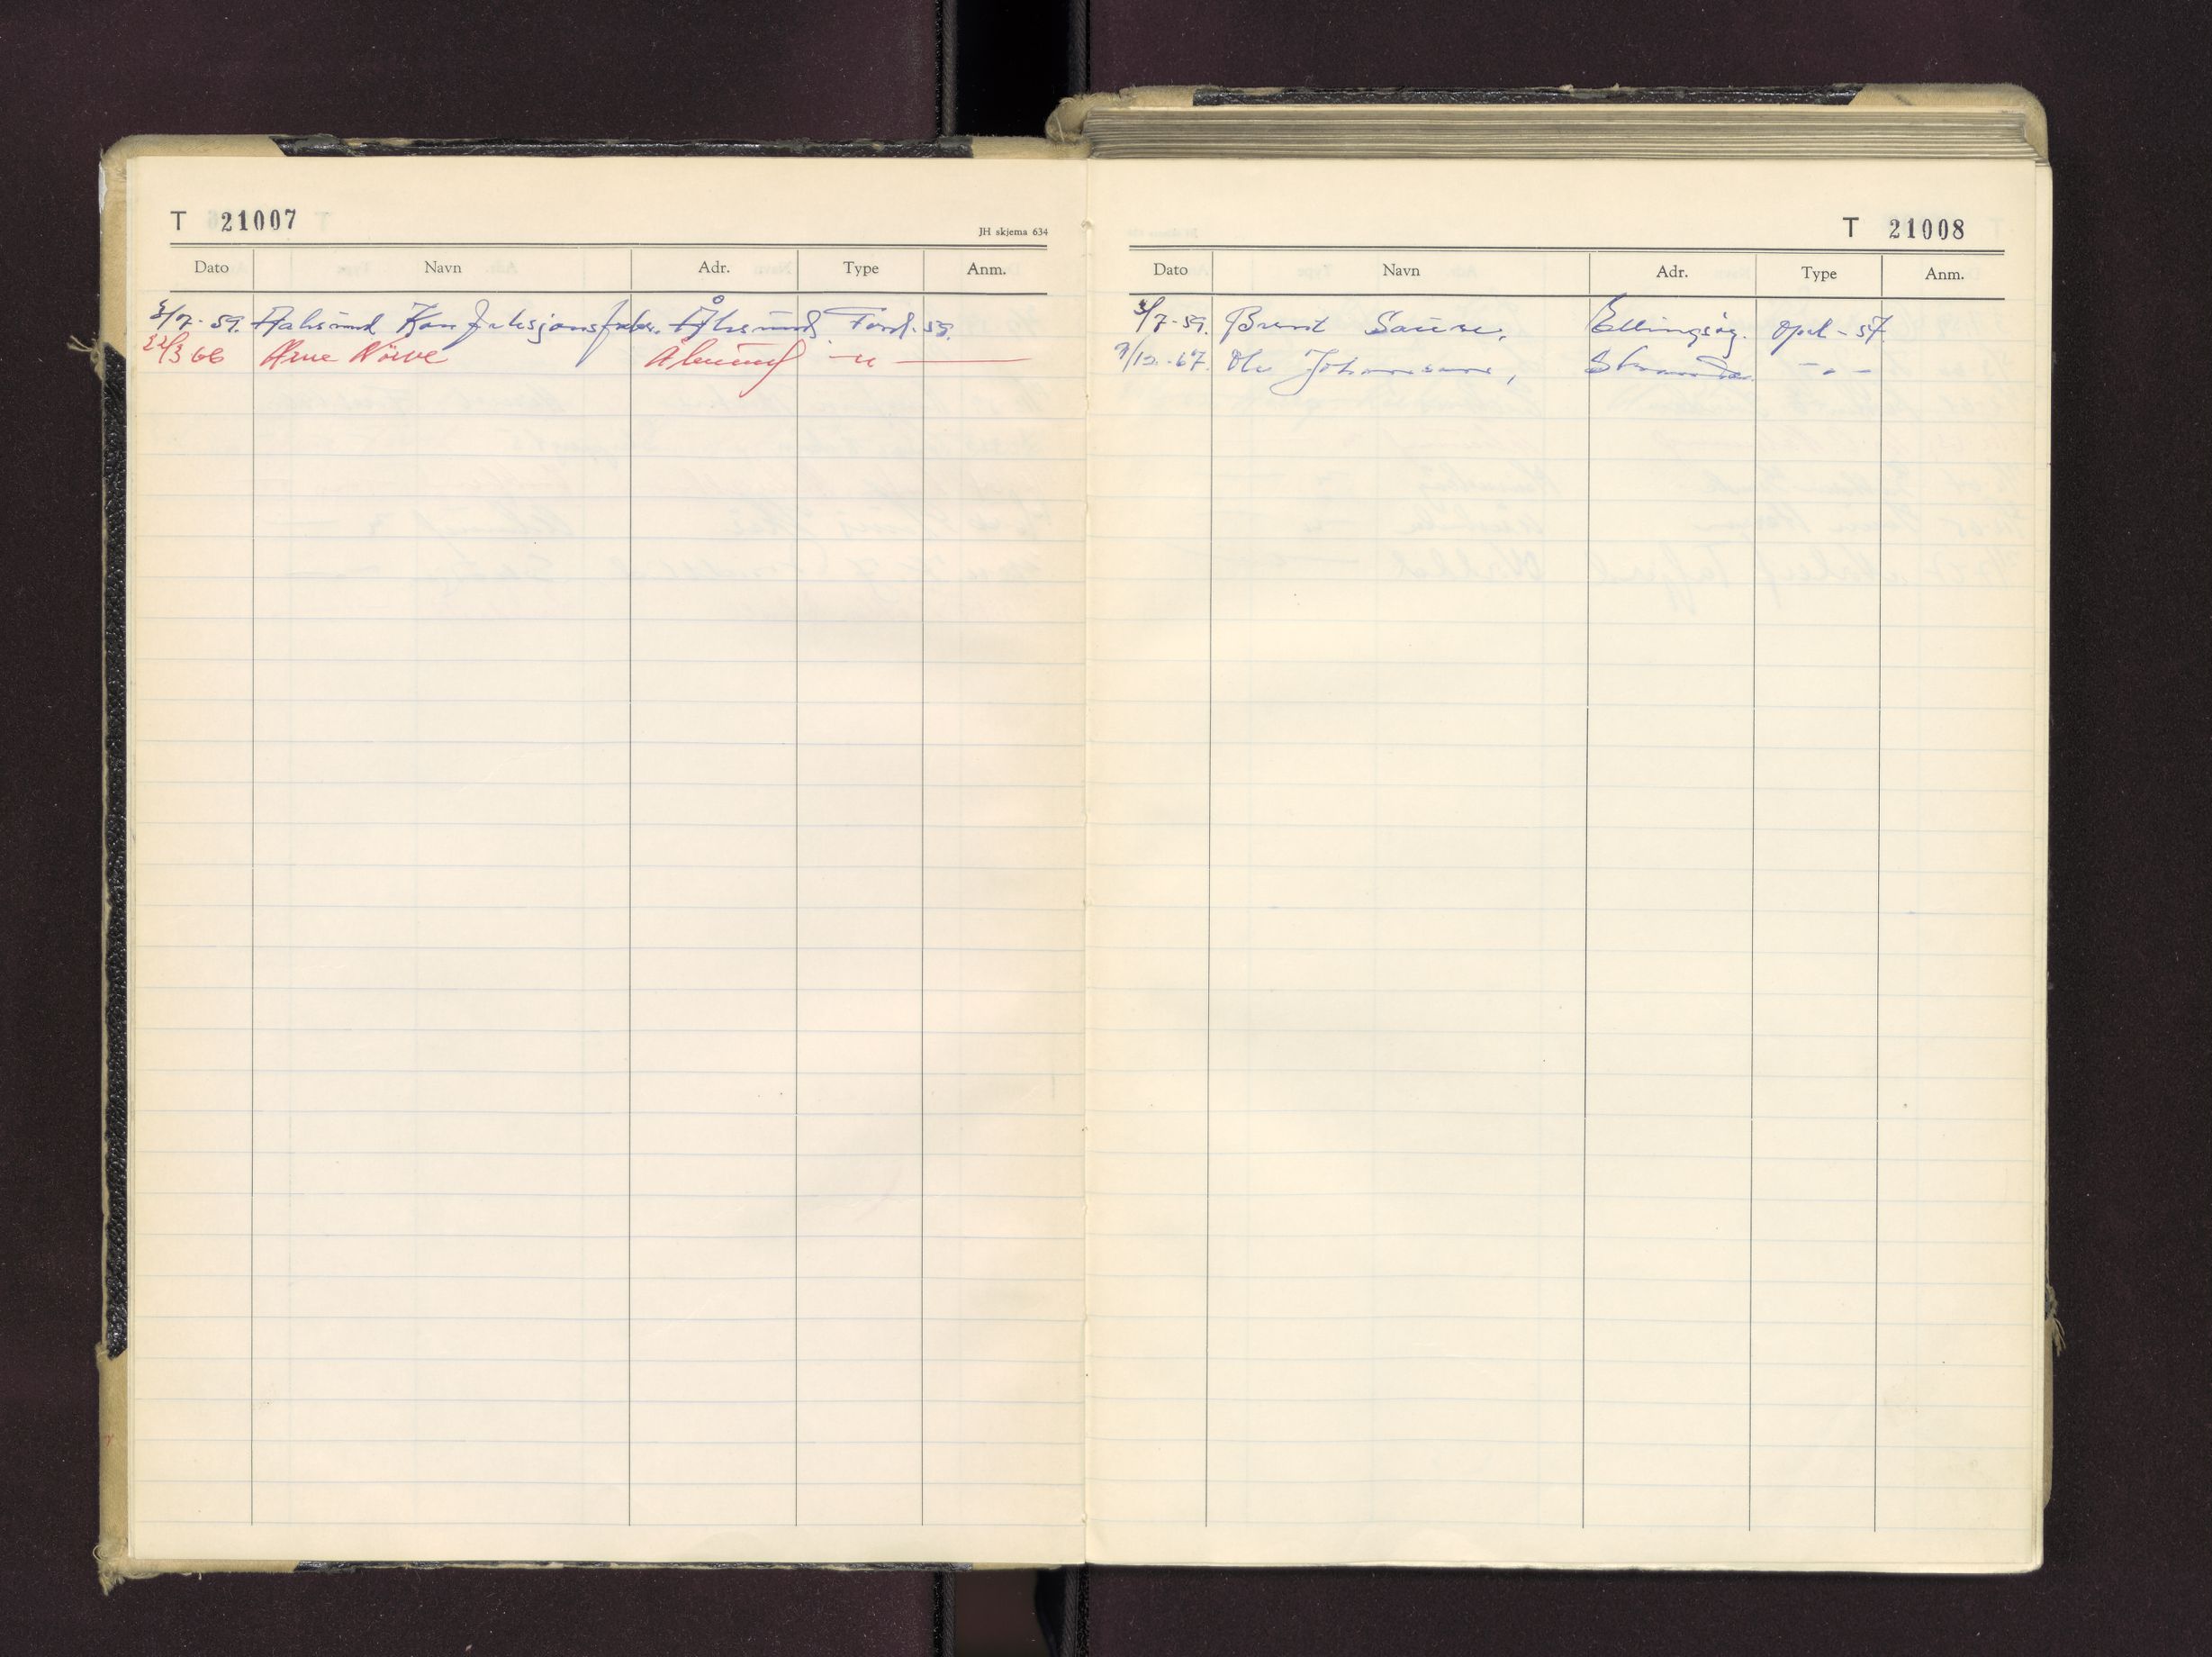 T 21007
JH skjema 634
Dato Navn Adr. Type Anm.
3/7-59. Aalesund Konfeksjonsfabr. Ålesund. Ford. 59.
22/3 66 Arne Nörve Ålesund -"-
T 21008
Dato Navn Adr. Type Anm.
3/7-59. Bernt Ellingsøy. Opel - 57.
/12.-67. Ole Johannsen, Stranda -"-